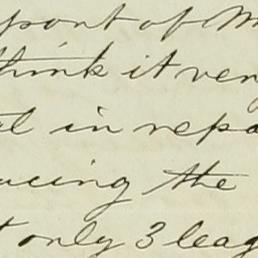 port of M
think it very
al in repa
ucing the
t only 3 leag